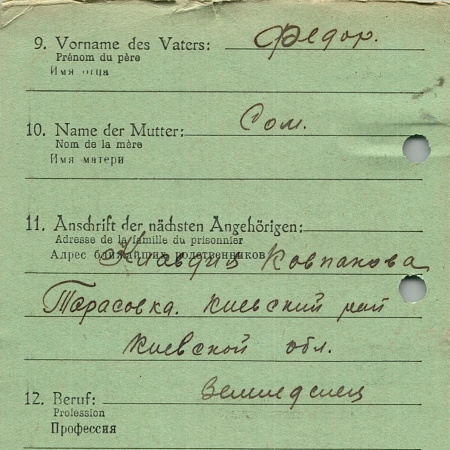 9. Vorname des Vaters: Федор.
Prénom du père
Имя отца
10. Name der Mutter: Сом.
Nom de la mère
Имя матери
11. Anschrift der nächsten Angehörigen:
Adresse de la famille du prisonnier
Адрес ближайших родственников
Клавдия Ковпакова
Тарасовка. Киевский рай
Киевской обл.
12. Beruf: Земледелец
Profession
Профессия